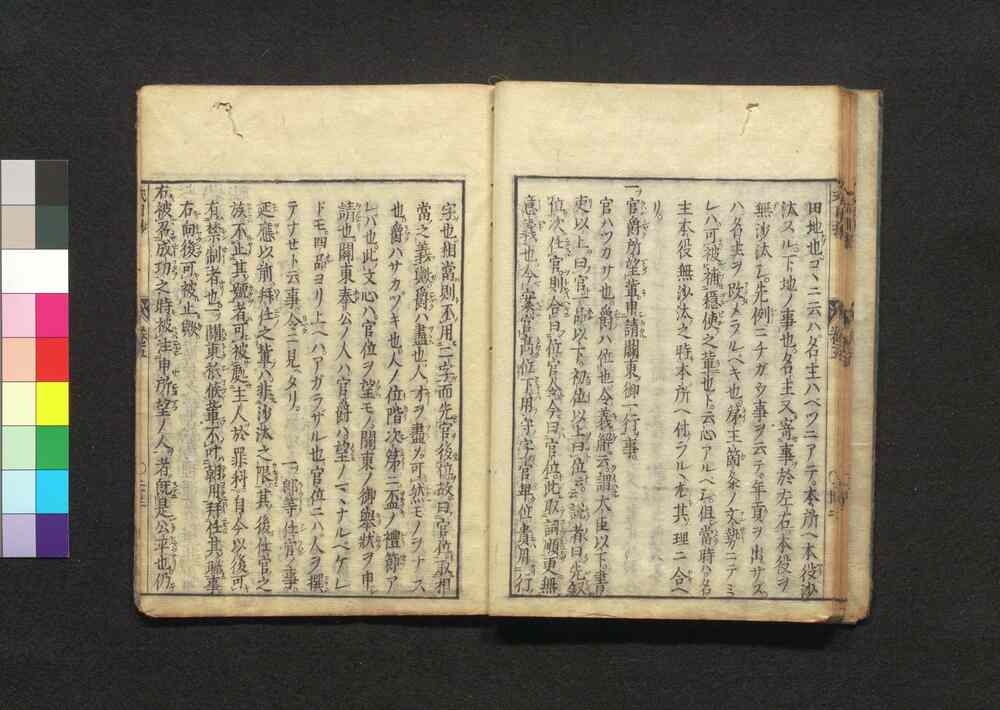 田地也爰ニ云ハ名主ハベツニアテ本所ヘ本役沙
汰スル下地ノ事也名主又寄事於左右本役ヲ
無沙汰シ先例ニチガウ事ヲ云テ年貢ヲ出サズ
ハ名主ヲ改メラルベキ也第主箇条ノ文勢ニテミ
レハ可被補穏便之輩也ト云心アルベシ但當時ハ名
主本役無沙汰之時本所ヘ付ラルヽ尤其理ニ合ヘ
リ
一官爵所望輩申請關東御一行事
官ハツカサ也爵ハ位也令義解云謂太政以下書
吏以上曰官一品以下初位以上曰位云云説者曰先叙
位次任官則合曰位官今令曰官位此取詞順更無
意義也今案官高位下用守字官卑位貴用行
字也相當則不用二字而先官後位故曰官位取相
當之義歟爵ハ盡也人ノ才ヲ盡ソ可然モノヲナス
也爵ハサカヅキ也人ノ位階次第ニ盃ノ禮節ア
レバ也此文心ハ官位ヲ望モノ關東ノ御擧状ヲ申
請也關東奉公ノ人ハ官爵ハ望ノマヽナルベケレ
ドモ四品ヨリ上ヘハアガラザル也官位ニハ人ヲ撰
テナサセト云事令ニ見ヘタリ 一郎等任官事
廷應以前拜任之輩ハ非沙汰之限其後任官之
族不止其號者可被處主人於罪科自今以後可
有禁制者也 一關東祗候輩不叶朝用拜任其職事
右向後可被止歟
右被召成功之時被注申所望ノ人者既是公平也仍